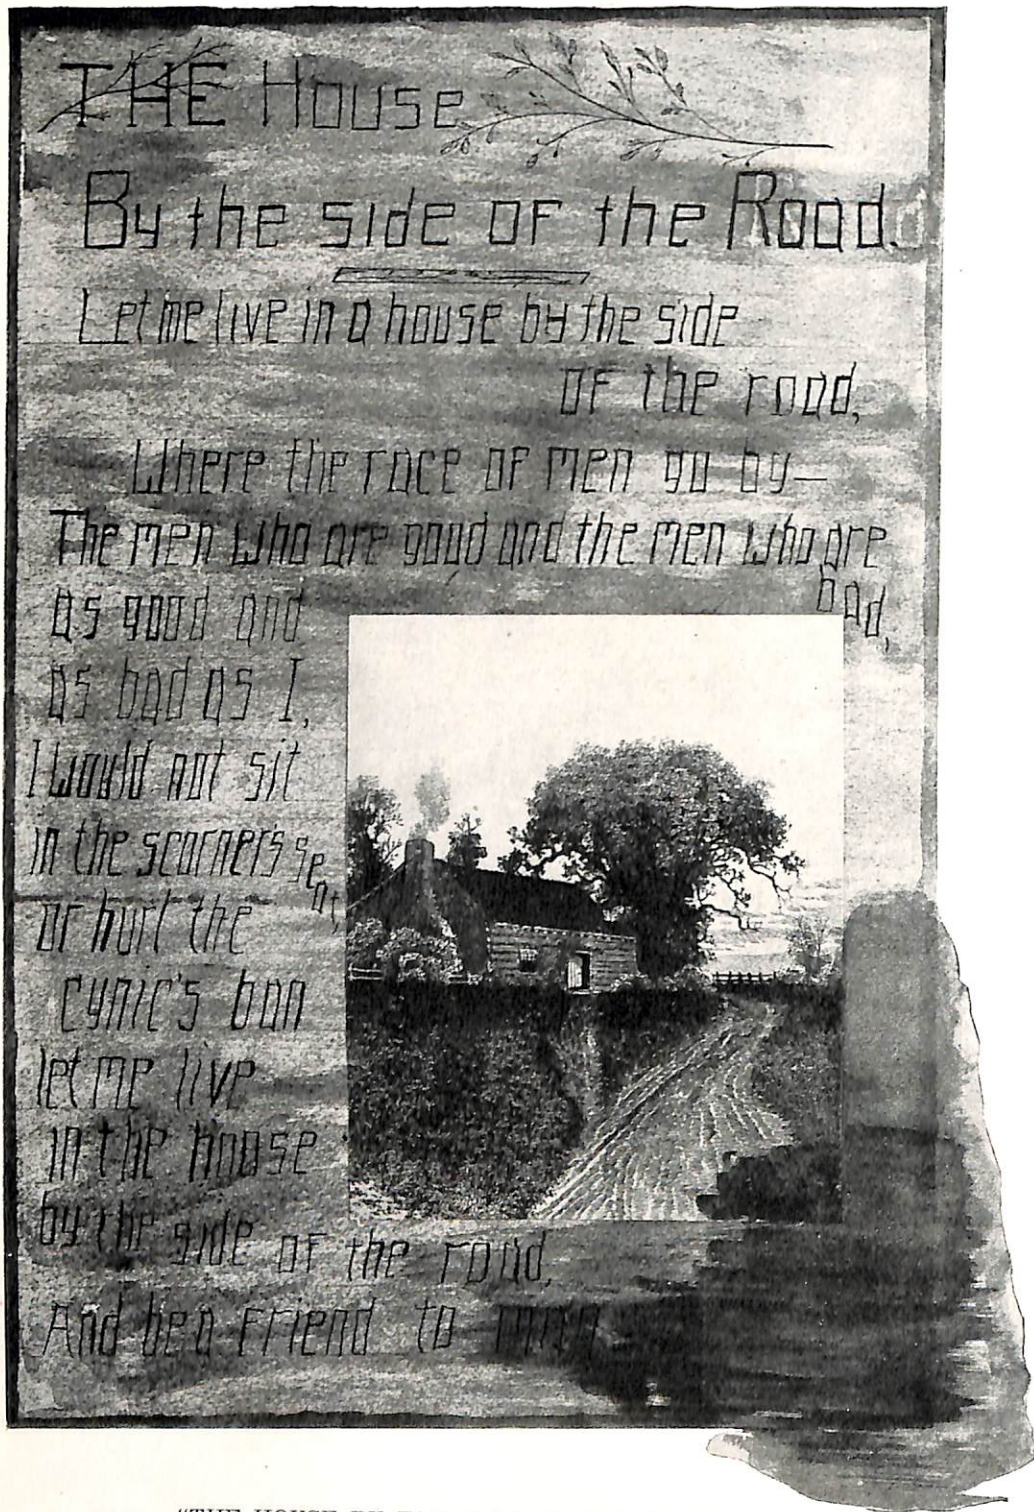 THE House
By the side of the Road.
Let me live in a house by the side
of the road,
Where the race of men go by—
The men who are good and the men who are
bad,
as good and
as bad as I,
I would not sit
in the scorner's seat,
or hurl the
cynic's ban
let me live
in the house
by the side of the road,
And be a friend to man
"THE HOUSE BY